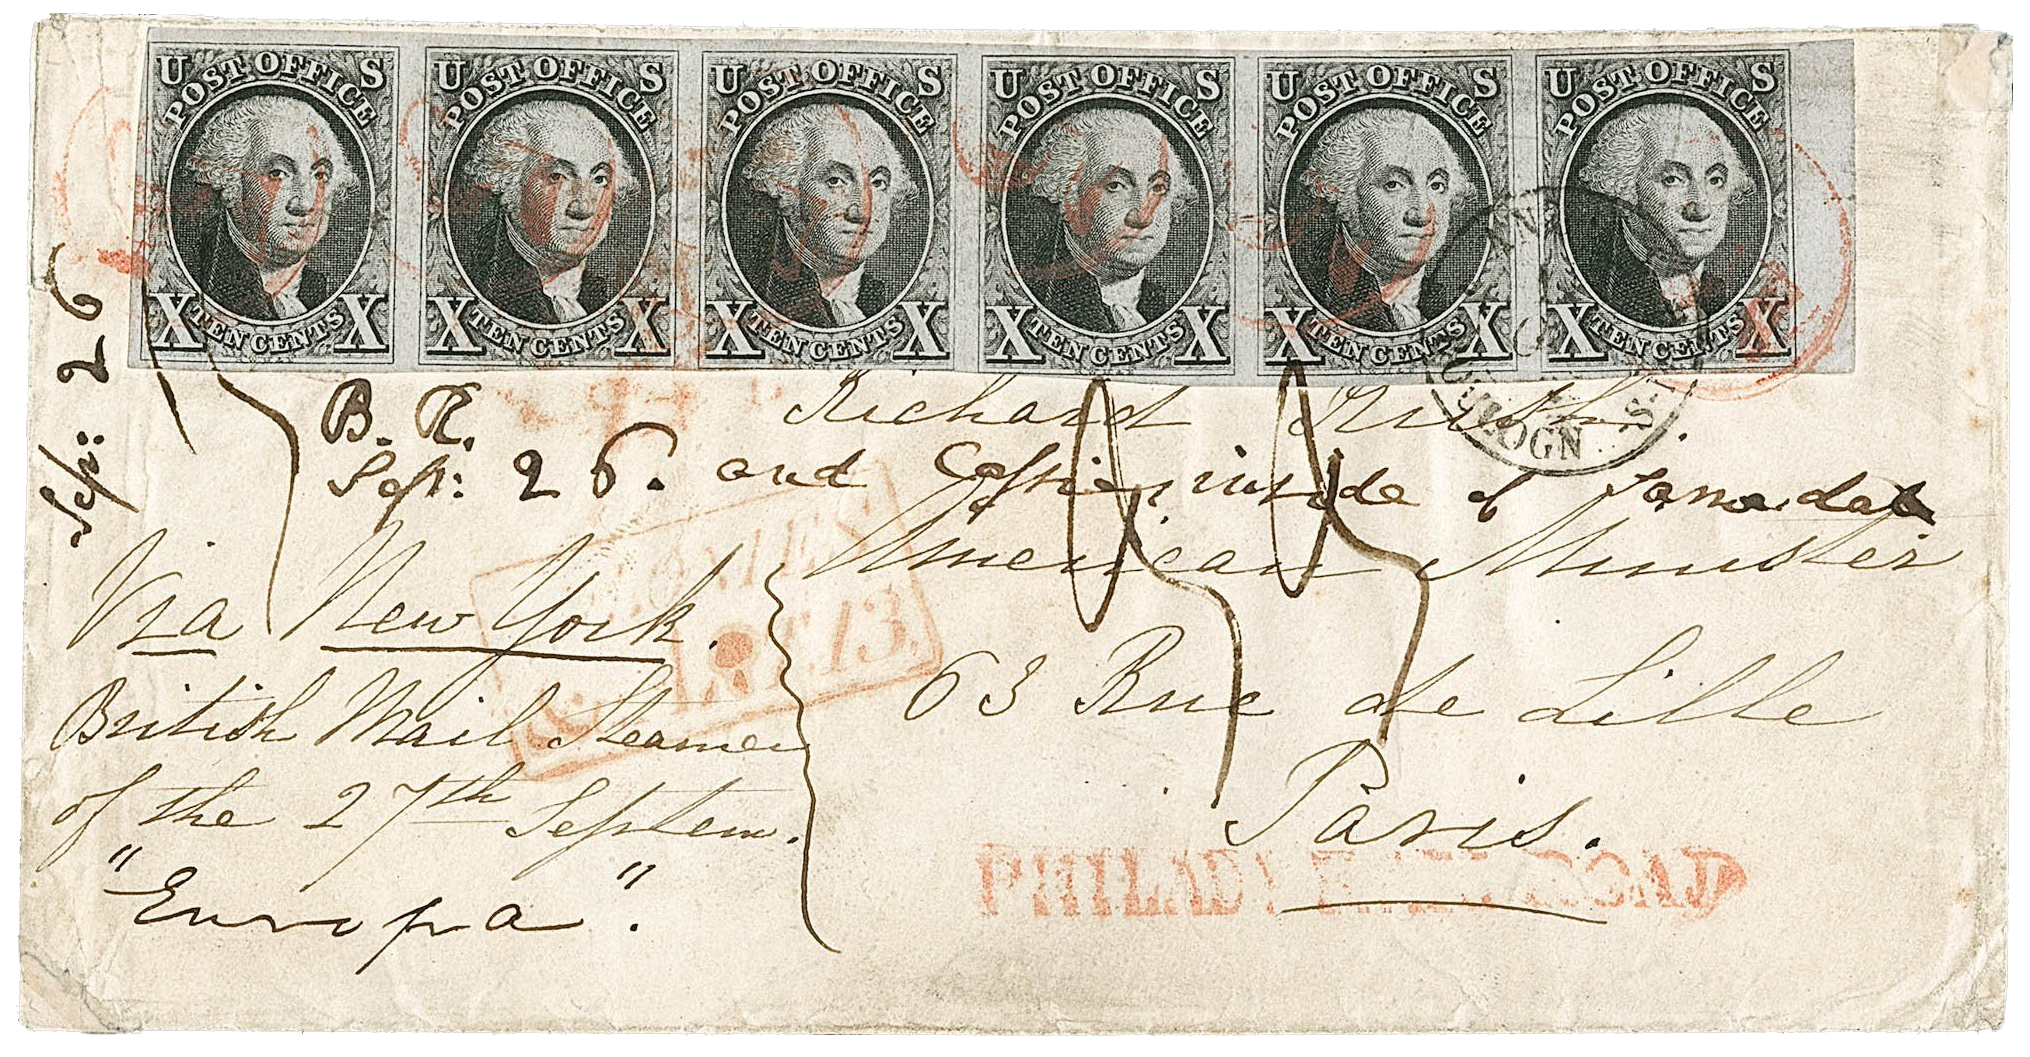 U S U S U S U S U S U S
POST OFFICE POST OFFICE POST OFFICE POST OFFICE POST OFFICE POST OFFICE
X TEN CENTS X X TEN CENTS X X TEN CENTS X X TEN CENTS X X TEN CENTS X X TEN CENTS X
Sep: 26
B. R.
Richard Rush.
Sep: 26. and Copies inside of
American Minister
Via New York.
63 Rue de Lille
British Mail Steamer
of the 27th Septem.
Paris.
"Europa".
13